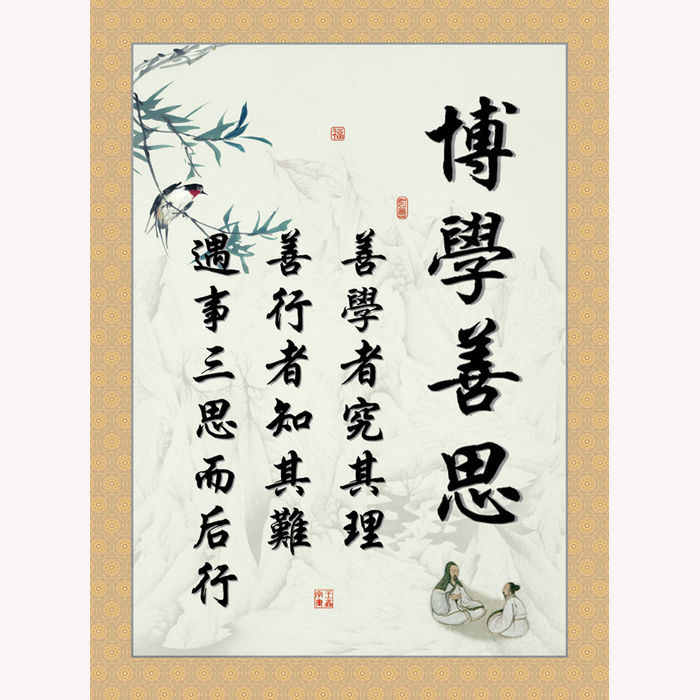 博學善思
善學者究其理
善行者知其難
遇事三思而后行
福